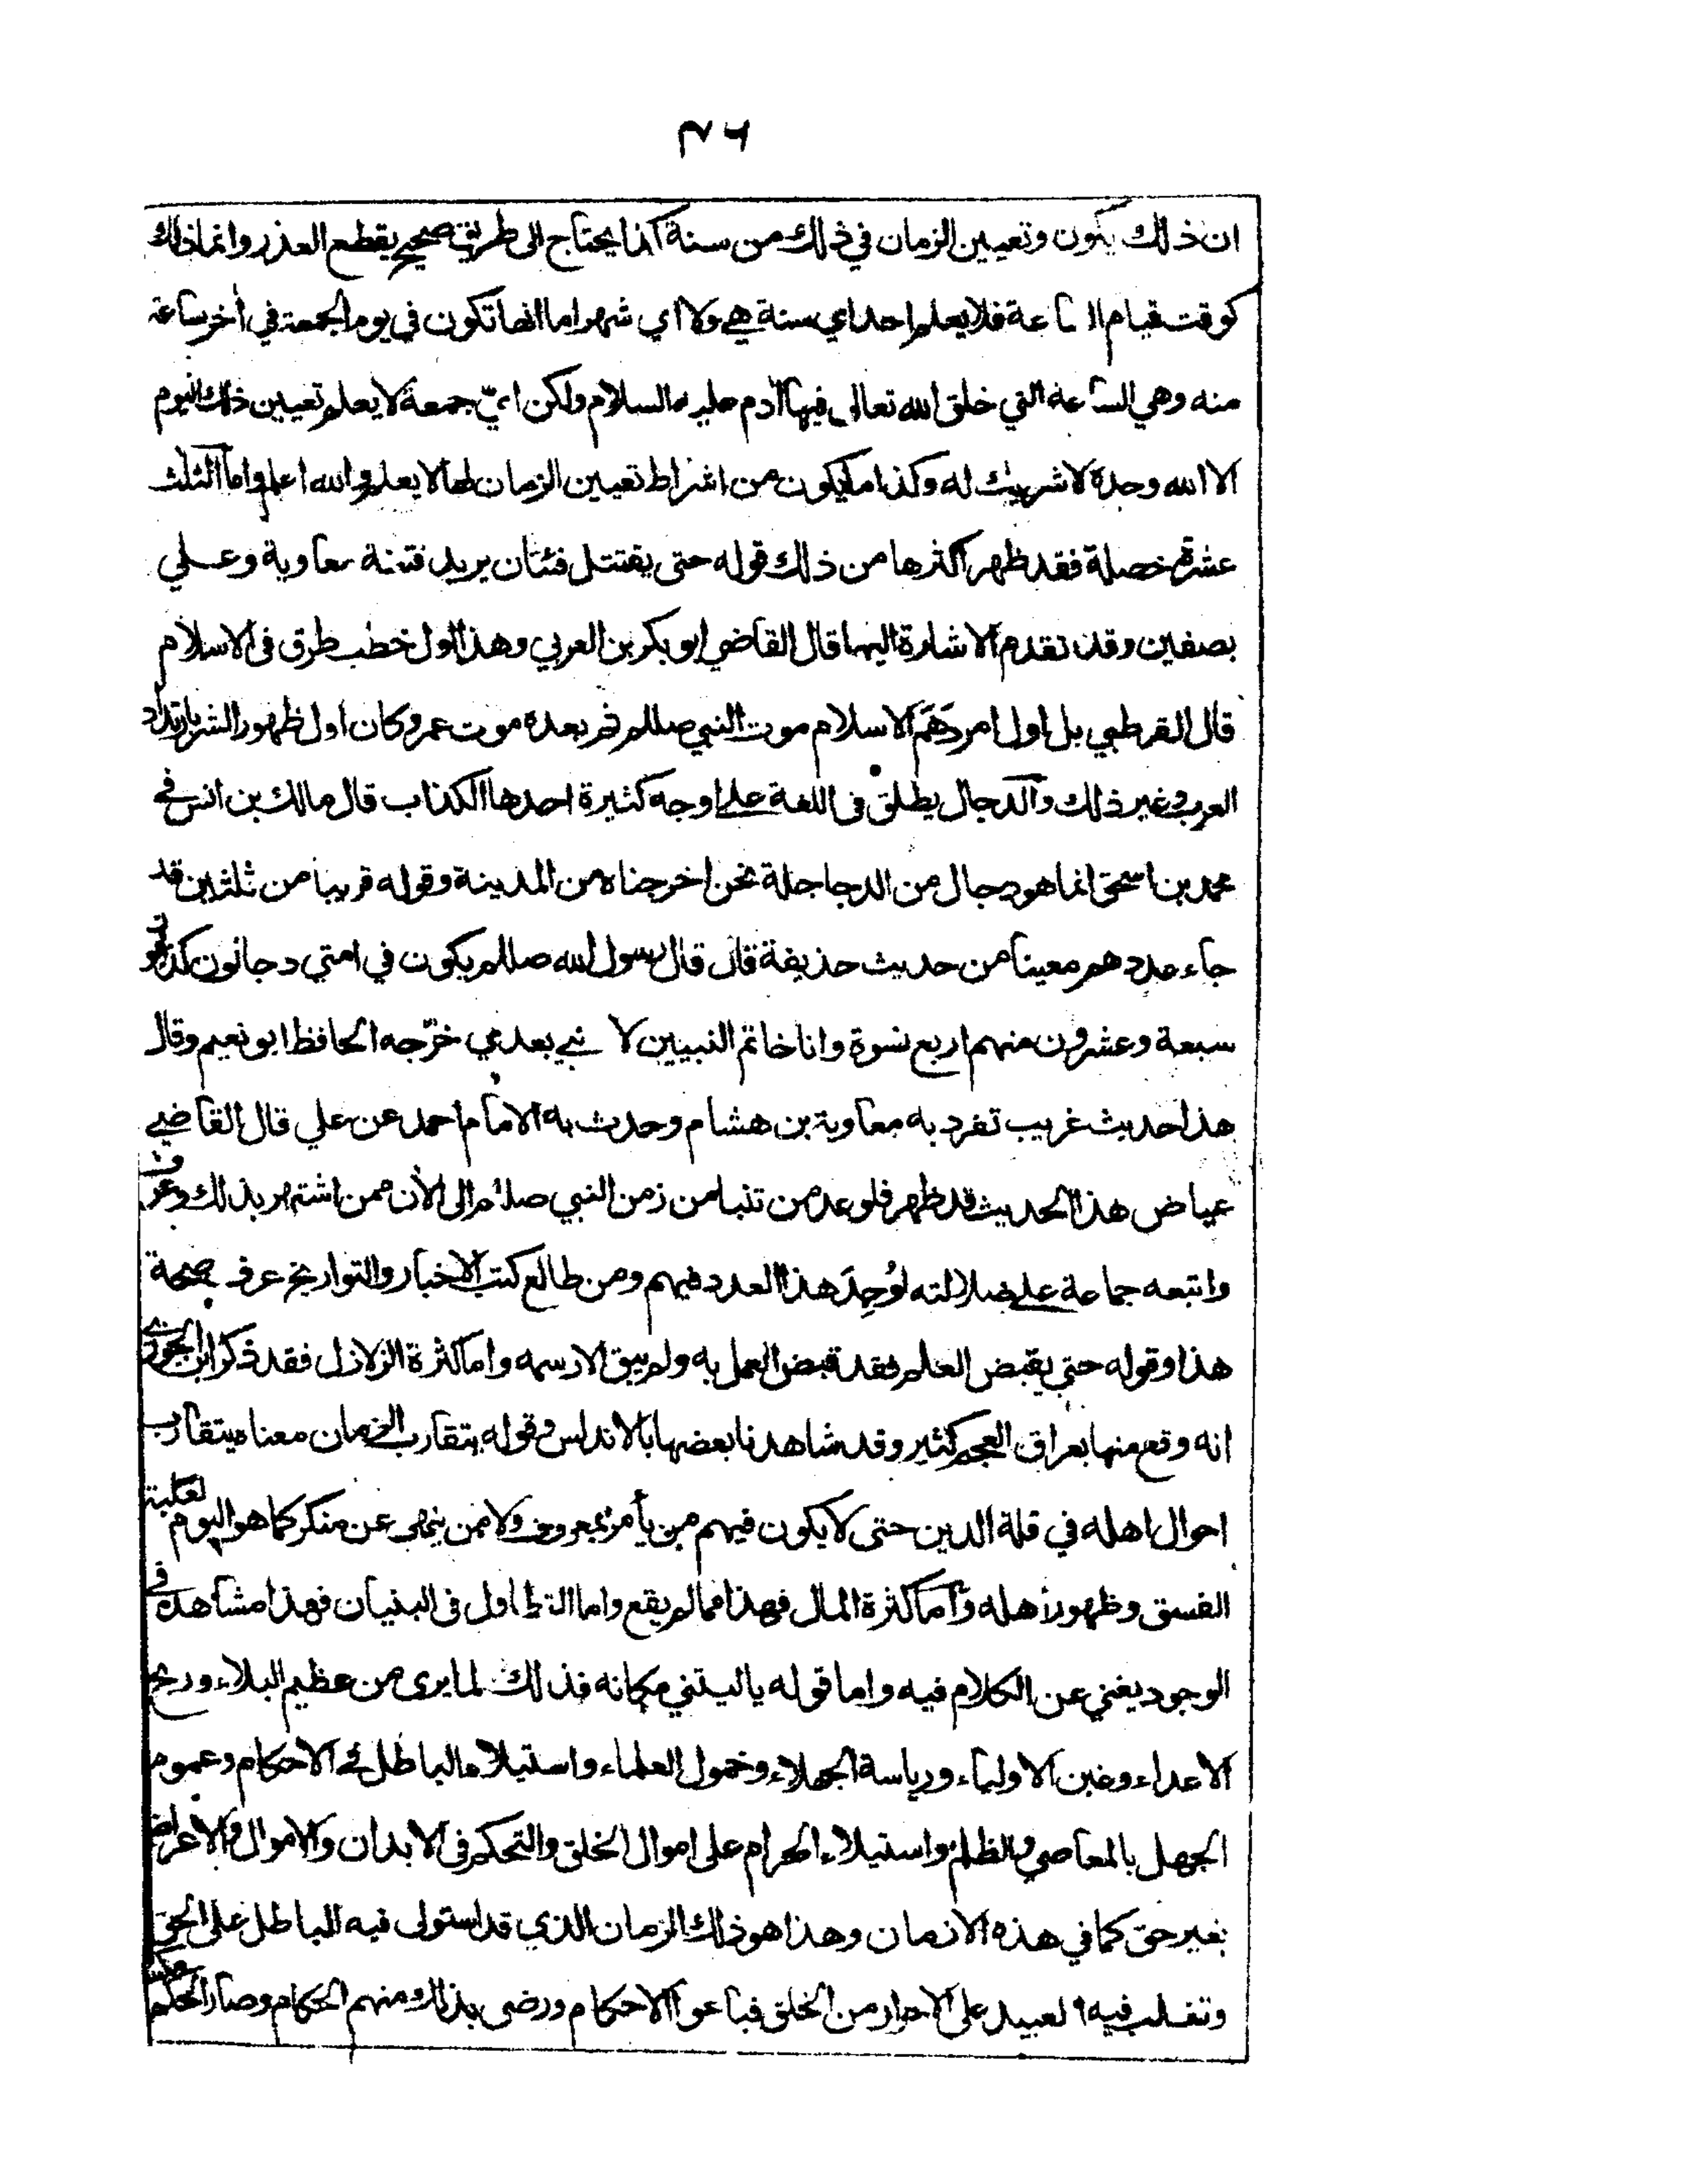 ٤٦
ان ذلك يكون وتعيين الزمان في ذلك من سنة كذا يحتاج الى طريق صحيح يقطع العذر وانما ذلك
كوقت قيام الساعة فلا يعلم احد اي سنة هي ولا اي شهر اما انها تكون في يوم الجمعة في أخر ساعة
منه وهي الساعة التي خلق الله تعالى فيها آدم عليه السلام ولكن ايّ جمعة لا يعلم تعيين ذلك اليوم
الا الله وحده لا شريك له وكذا ما يكون من اشراط تعيين الزمان لها لا يعلم والله اعلم واما الثلث
عشرة خصلة فقد ظهر اكثرها من ذلك قوله حتى يقتتل فئتان يريد فتنة معاوية وعلي
بصفين وقد تقدم الاشارة اليها قال القاضي ابو بكر بن العربي وهذا اول خطب طرق في الاسلام
قال القرطبي بل اول امر دَهَمَ الاسلام موت النبي صللم ثم بعده موت عمر وكان اول ظهور الشر بارتداد
العرب وغير ذلك والدجال يطلق في اللغة على اوجه كثيرة احدها الكذاب قال مالك بن انس في
محمد بن اسحق انما هو دجال من الدجاجلة نحن اخرجناه من المدينة وقوله قريبا من ثلثين قد
جاء عددهم معينا من حديث حذيفة قال قال رسول الله صللم يكون في امتي دجالون كذابون
سبعة وعشرون منهم اربع نسوة وانا خاتم النبيين لا نبي بعدي خرّجه الحافظ ابو نعيم وقال
هذا حديث غريب تفرد به معاوية بن هشام وحدث به الامام احمد عن علي قال القاضي
عياض هذا الحديث قد ظهر فلو عد من تنبا من زمن النبي صللم الى الأن ممن اشتهر بذلك وعرف
واتبعه جماعة على ضلالته لوُجِدَ هذا العدد فيهم ومن طالع كتب الاخبار والتواريخ عرف صحة
هذا وقوله حتى يقبض العلم فقد قبض العمل به ولم يبق الا رسمه واما كثرة الزلازل فقد ذكر ابن الجوزي
انه وقع منها بعراق العجم كثير وقد شاهدنا بعضها بالاندلس وقوله يتقارب الزمان معناه يتقارب
احوال اهله في قلة الدين حتى لا يكون فيهم من يأمر بمعروف ولا من ينهى عن منكر كما هو اليوم لغلبة
الفسق وظهور أهله واما كثرة المال فهذا مما لم يقع واما التطاول في البنيان فهذا مشاهد في
الوجود يغني عن الكلام فيه واما قوله يا ليتني مكانه فذلك لما يرى من عظيم البلاء وربح
الاعداء وغبن الاولياء ورياسة الجهلاء وخمول العلماء واستيلاء الباطل في الاحكام وعموم
الجهل بالمعاصي والظلم واستيلاء الحرام على اموال الخلق والتحكم في الابدان والاموال والاعراض
بغير حق كما في هذه الازمان وهذا هو ذلك الزمان الذي قد استولى فيه الباطل على الحق
وتغلب فيه العبيد على الاحرار من الخلق فباعوا الاحكام ورضى بذلك منهم الحكام وصار الحكم